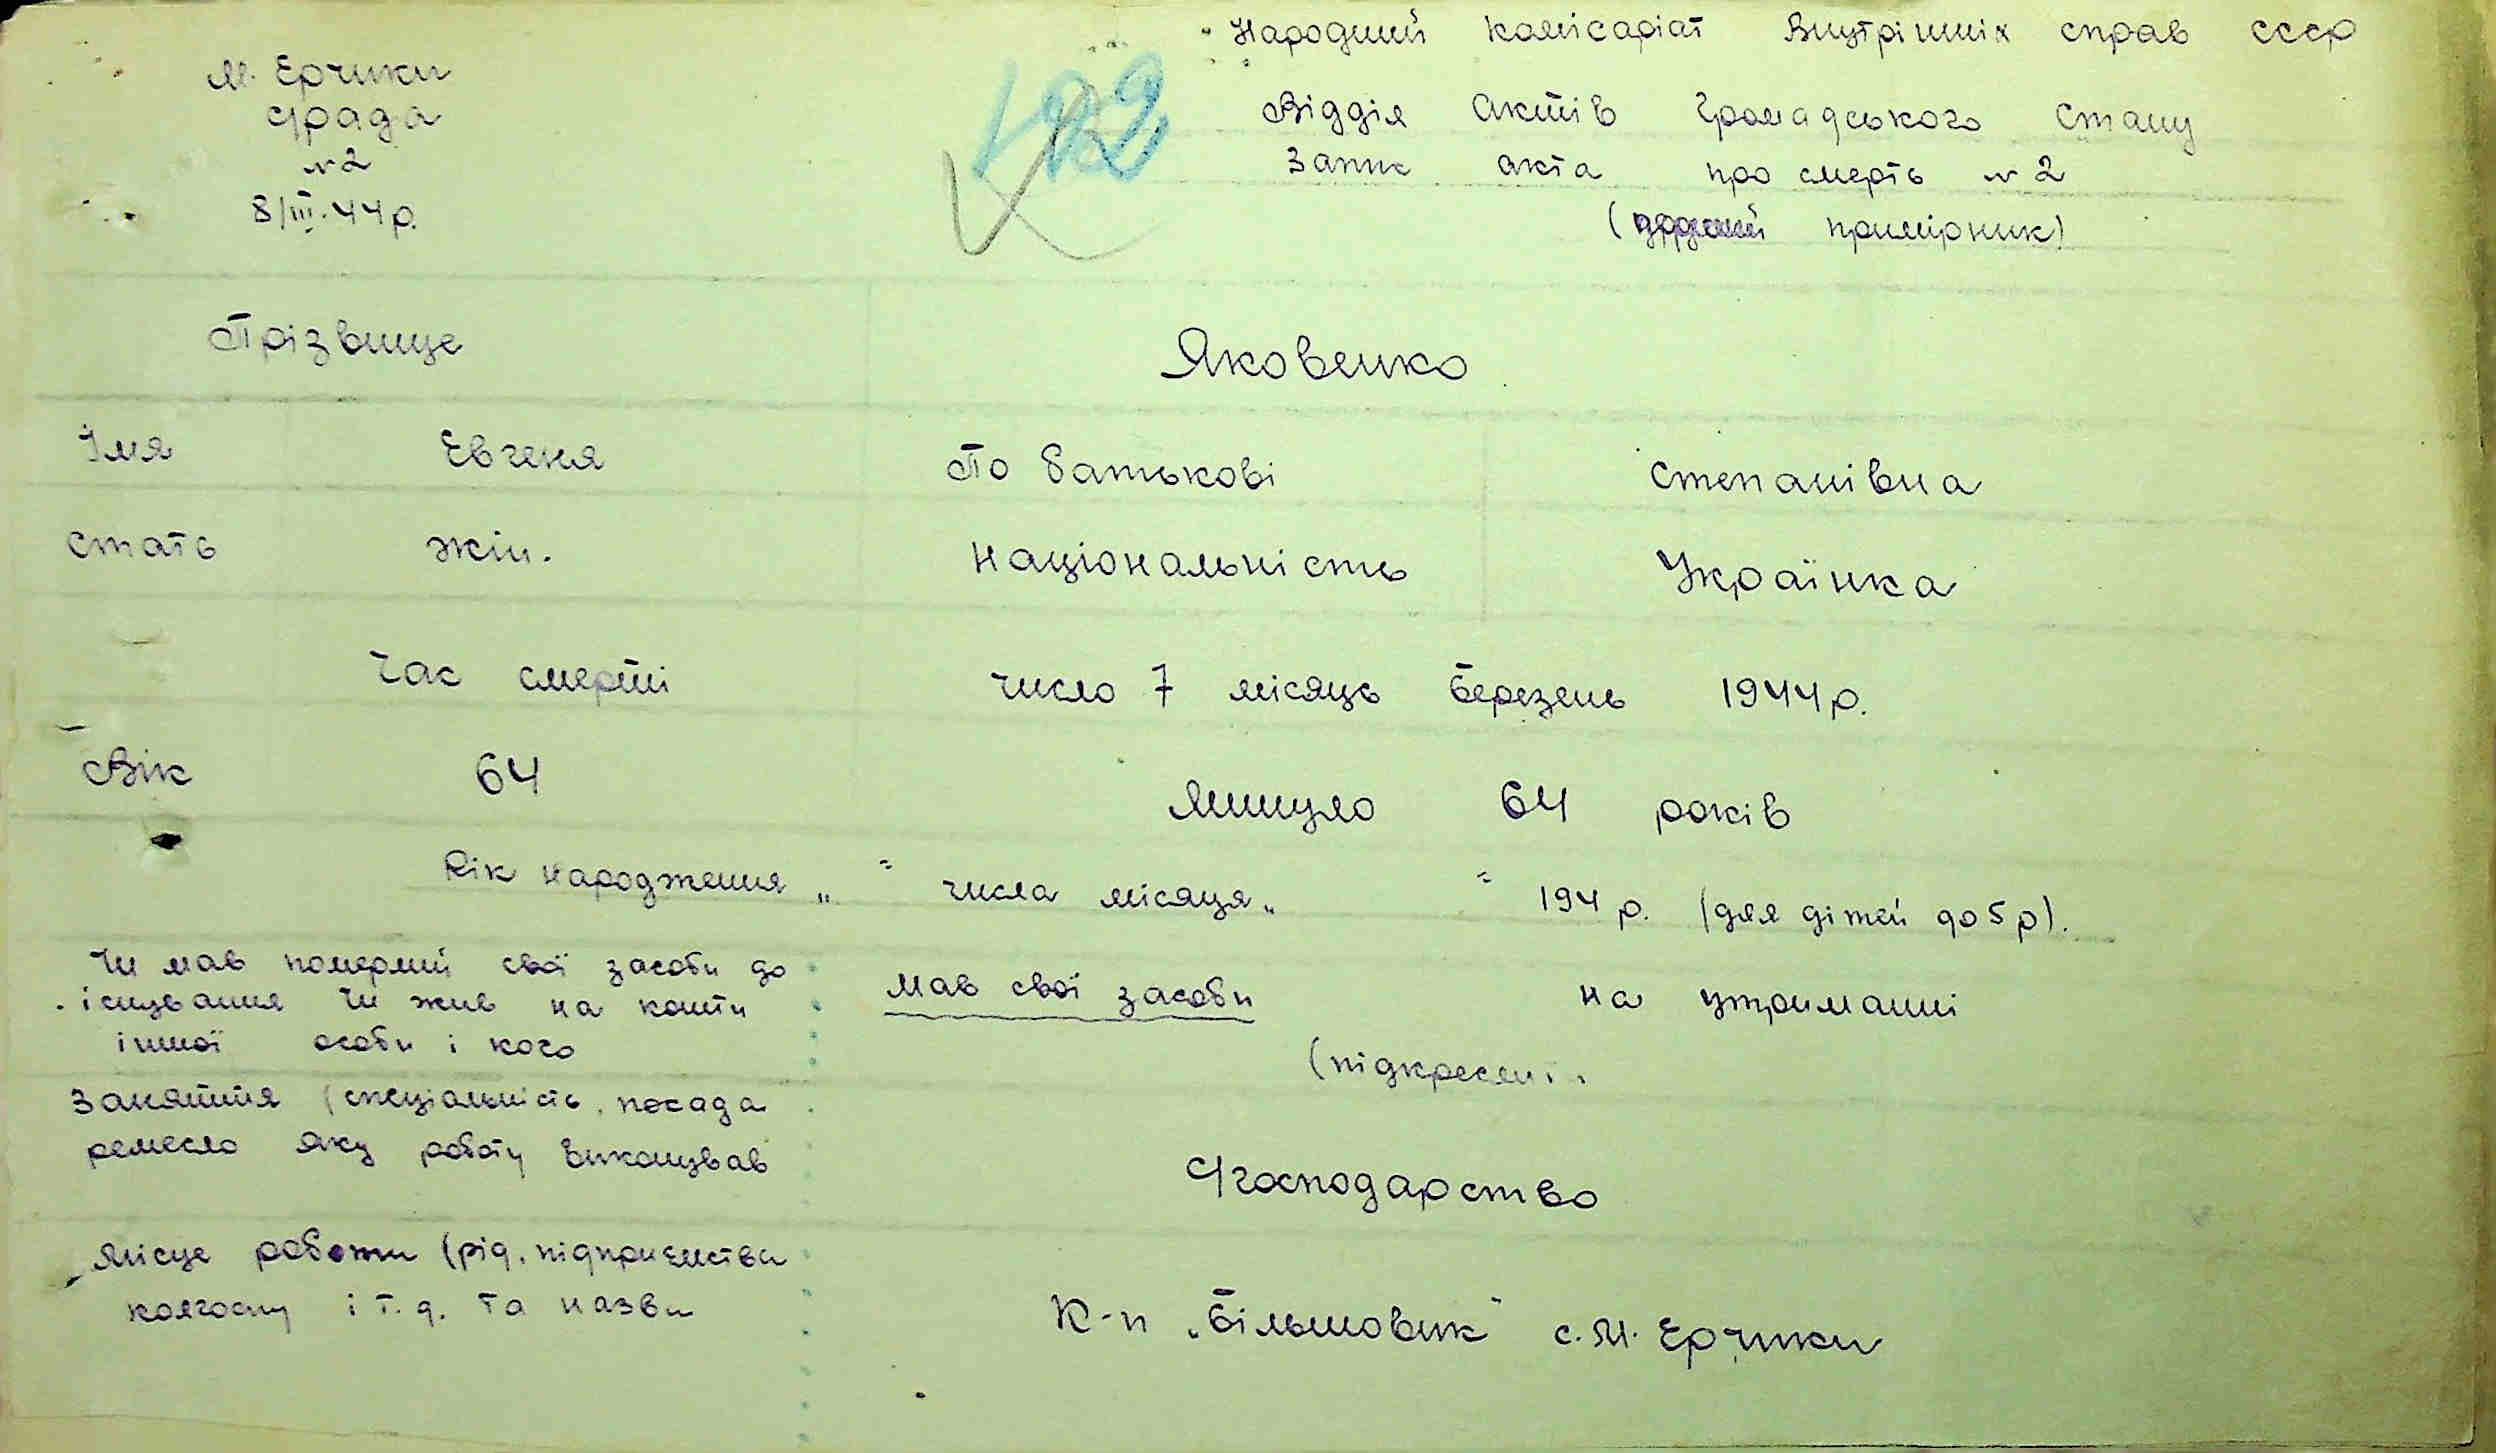 Народний комісаріат Внутрішніх справ СССР
М. Ерчики
с/рада
№2
8/III.44р.
Відділ Актів Громадського Стану
Запис акта про смерть №2
(другий примірник)
Прізвище Яковенко
Імя Евгенія По батькові Степанівна
Стать жін. Національність Українка
Час смерті число 7 місяць березень 1944р.
Вік 64 Минуло 64 років
Рік народження „ " числа місяця „ " 194 р. (для дітей до 5 р).
Чи мав померший свої засоби до
існування чи жив на кошти
іншої особи і кого
мав свої засоби на утриманні
(підкреслит
Заняття (спеціальність, посада
ремесло яку роботу виконував
С/господарство
Місце роботи (рід. підприємства
колгоспу і т.д. та назви
К-п „Більшовик" с. М. Ерчики